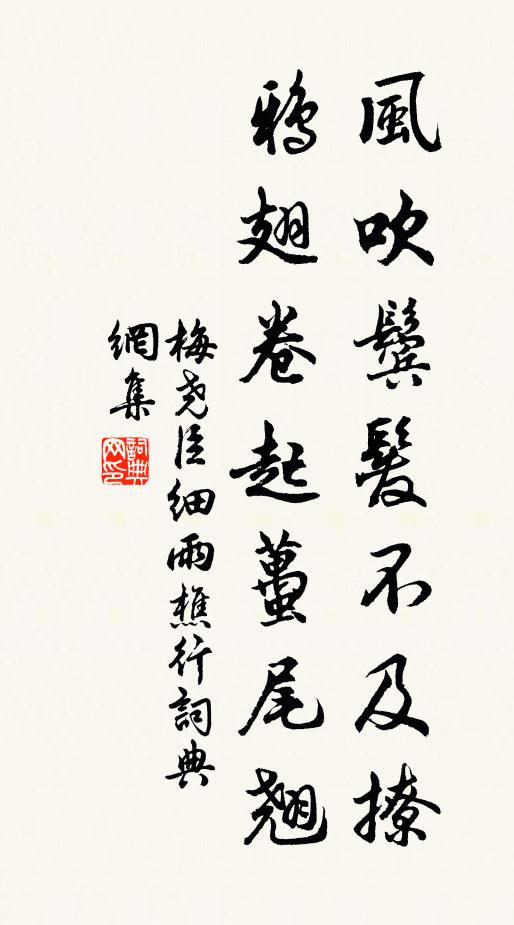 風吹鬓髮不及撩
鴉翅卷起蠆尾翹
梅尧臣細雨樵行詞典
網集
詞典
网印